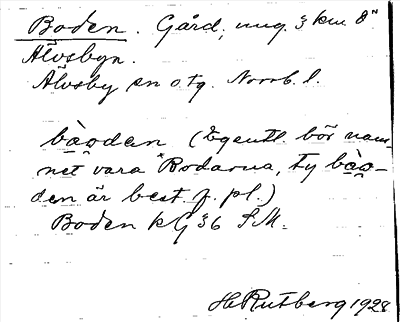 Boden. Gård, ung. 3 km Ö"
Älvsbyn.
Älvsby sn o tg. Norrb. l.
bàoden (Egentl. bör nam-
net vara "Bodarna, ty bào-
den är best. f. pl.)
Boden kG 36 SM.
H Rutberg 1928